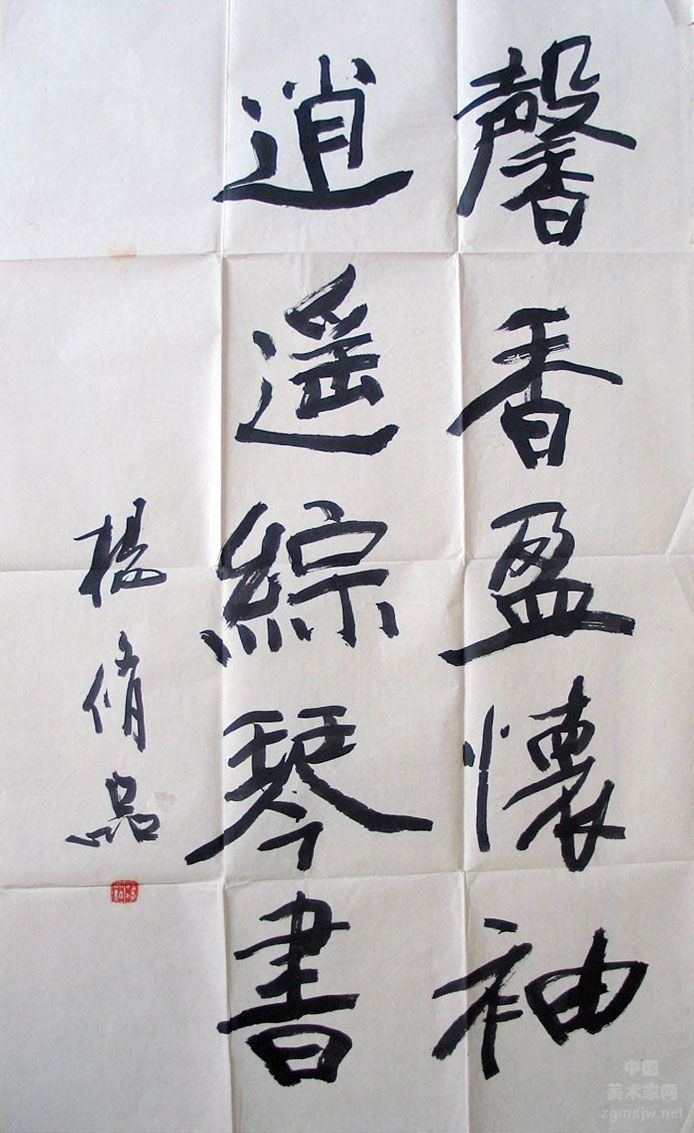 馨香盈懷袖
逍遥綜琴書
楊脩品
中国
美术家网
zgmsjw.net